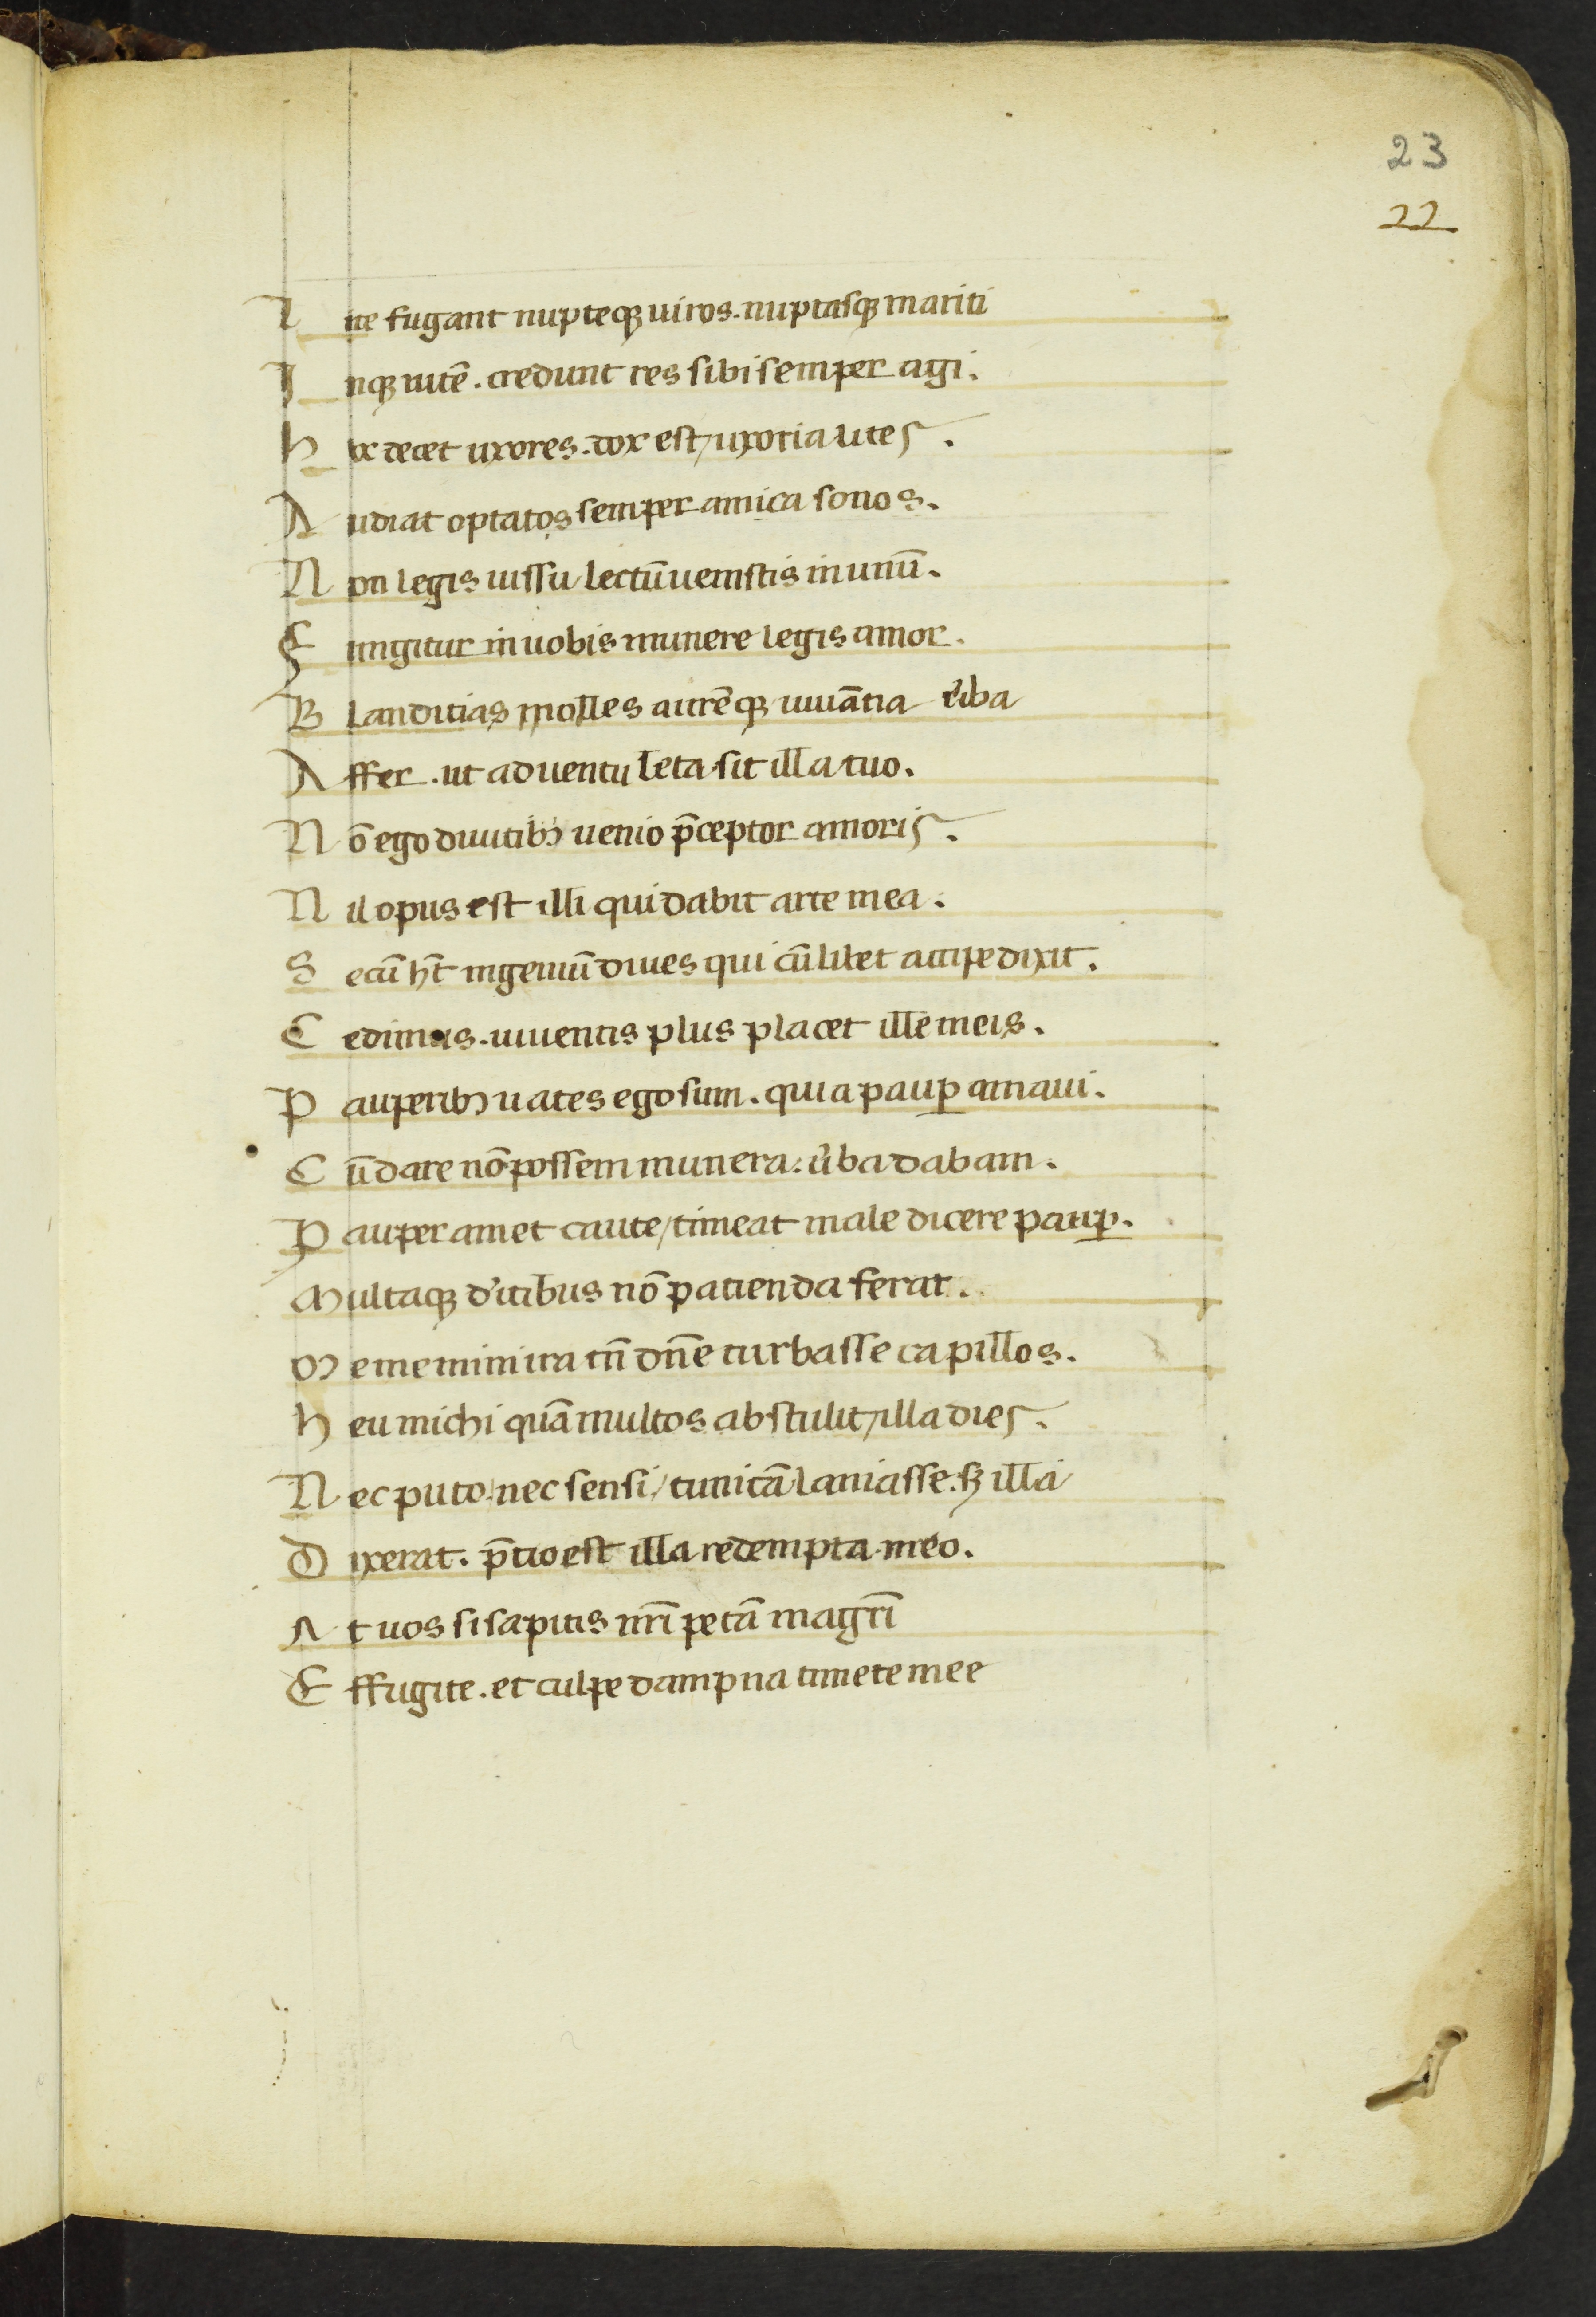 23
22
L ite fugant nupteqꝫ uiros. nuptasqꝫ mariti
I nqꝫ uicē. credunt res sibi semper agi.
h oc decet uxores. dox est / uxoria lites.
A udiat optatos semper amica sonos.
N on legis iussu lectū uenistis in unū.
F ungitur in uobis munere legis amor.
B landitias molles aurēqꝫ iuuātia u̓ba
A ffer. ut aduentu leta sit illa tuo.
N ō ego diuitibꝫ uenio p̄ceptor amoris.
N il opus est illi qui dabit arte mea.
S ecū ht̄ ingeniū diues qui cū libet accipe dixit.
C edimus. iuuentis plus placet ille meis.
P auperibꝫ uates ego sum. quia paup̱ amaui.
C ū dare nō possem munera: u̓ba dabam.
P auper amet caute / timeat male dicere paup̱.
M ultaqꝫ d'itibus nō patienda ferat.
M e memini ira tū dn̄e turbasse capillos.
h eu michi quā multos abstulit / illa dies.
N ec puto. nec sensi / tunicā laniasse. sꝫ illa
D ixerat. p̄tio est illa redempta meo.
A t uos si sapitis nr̄i petā magr̄i
E ffugite. et culpe dampna timete mee